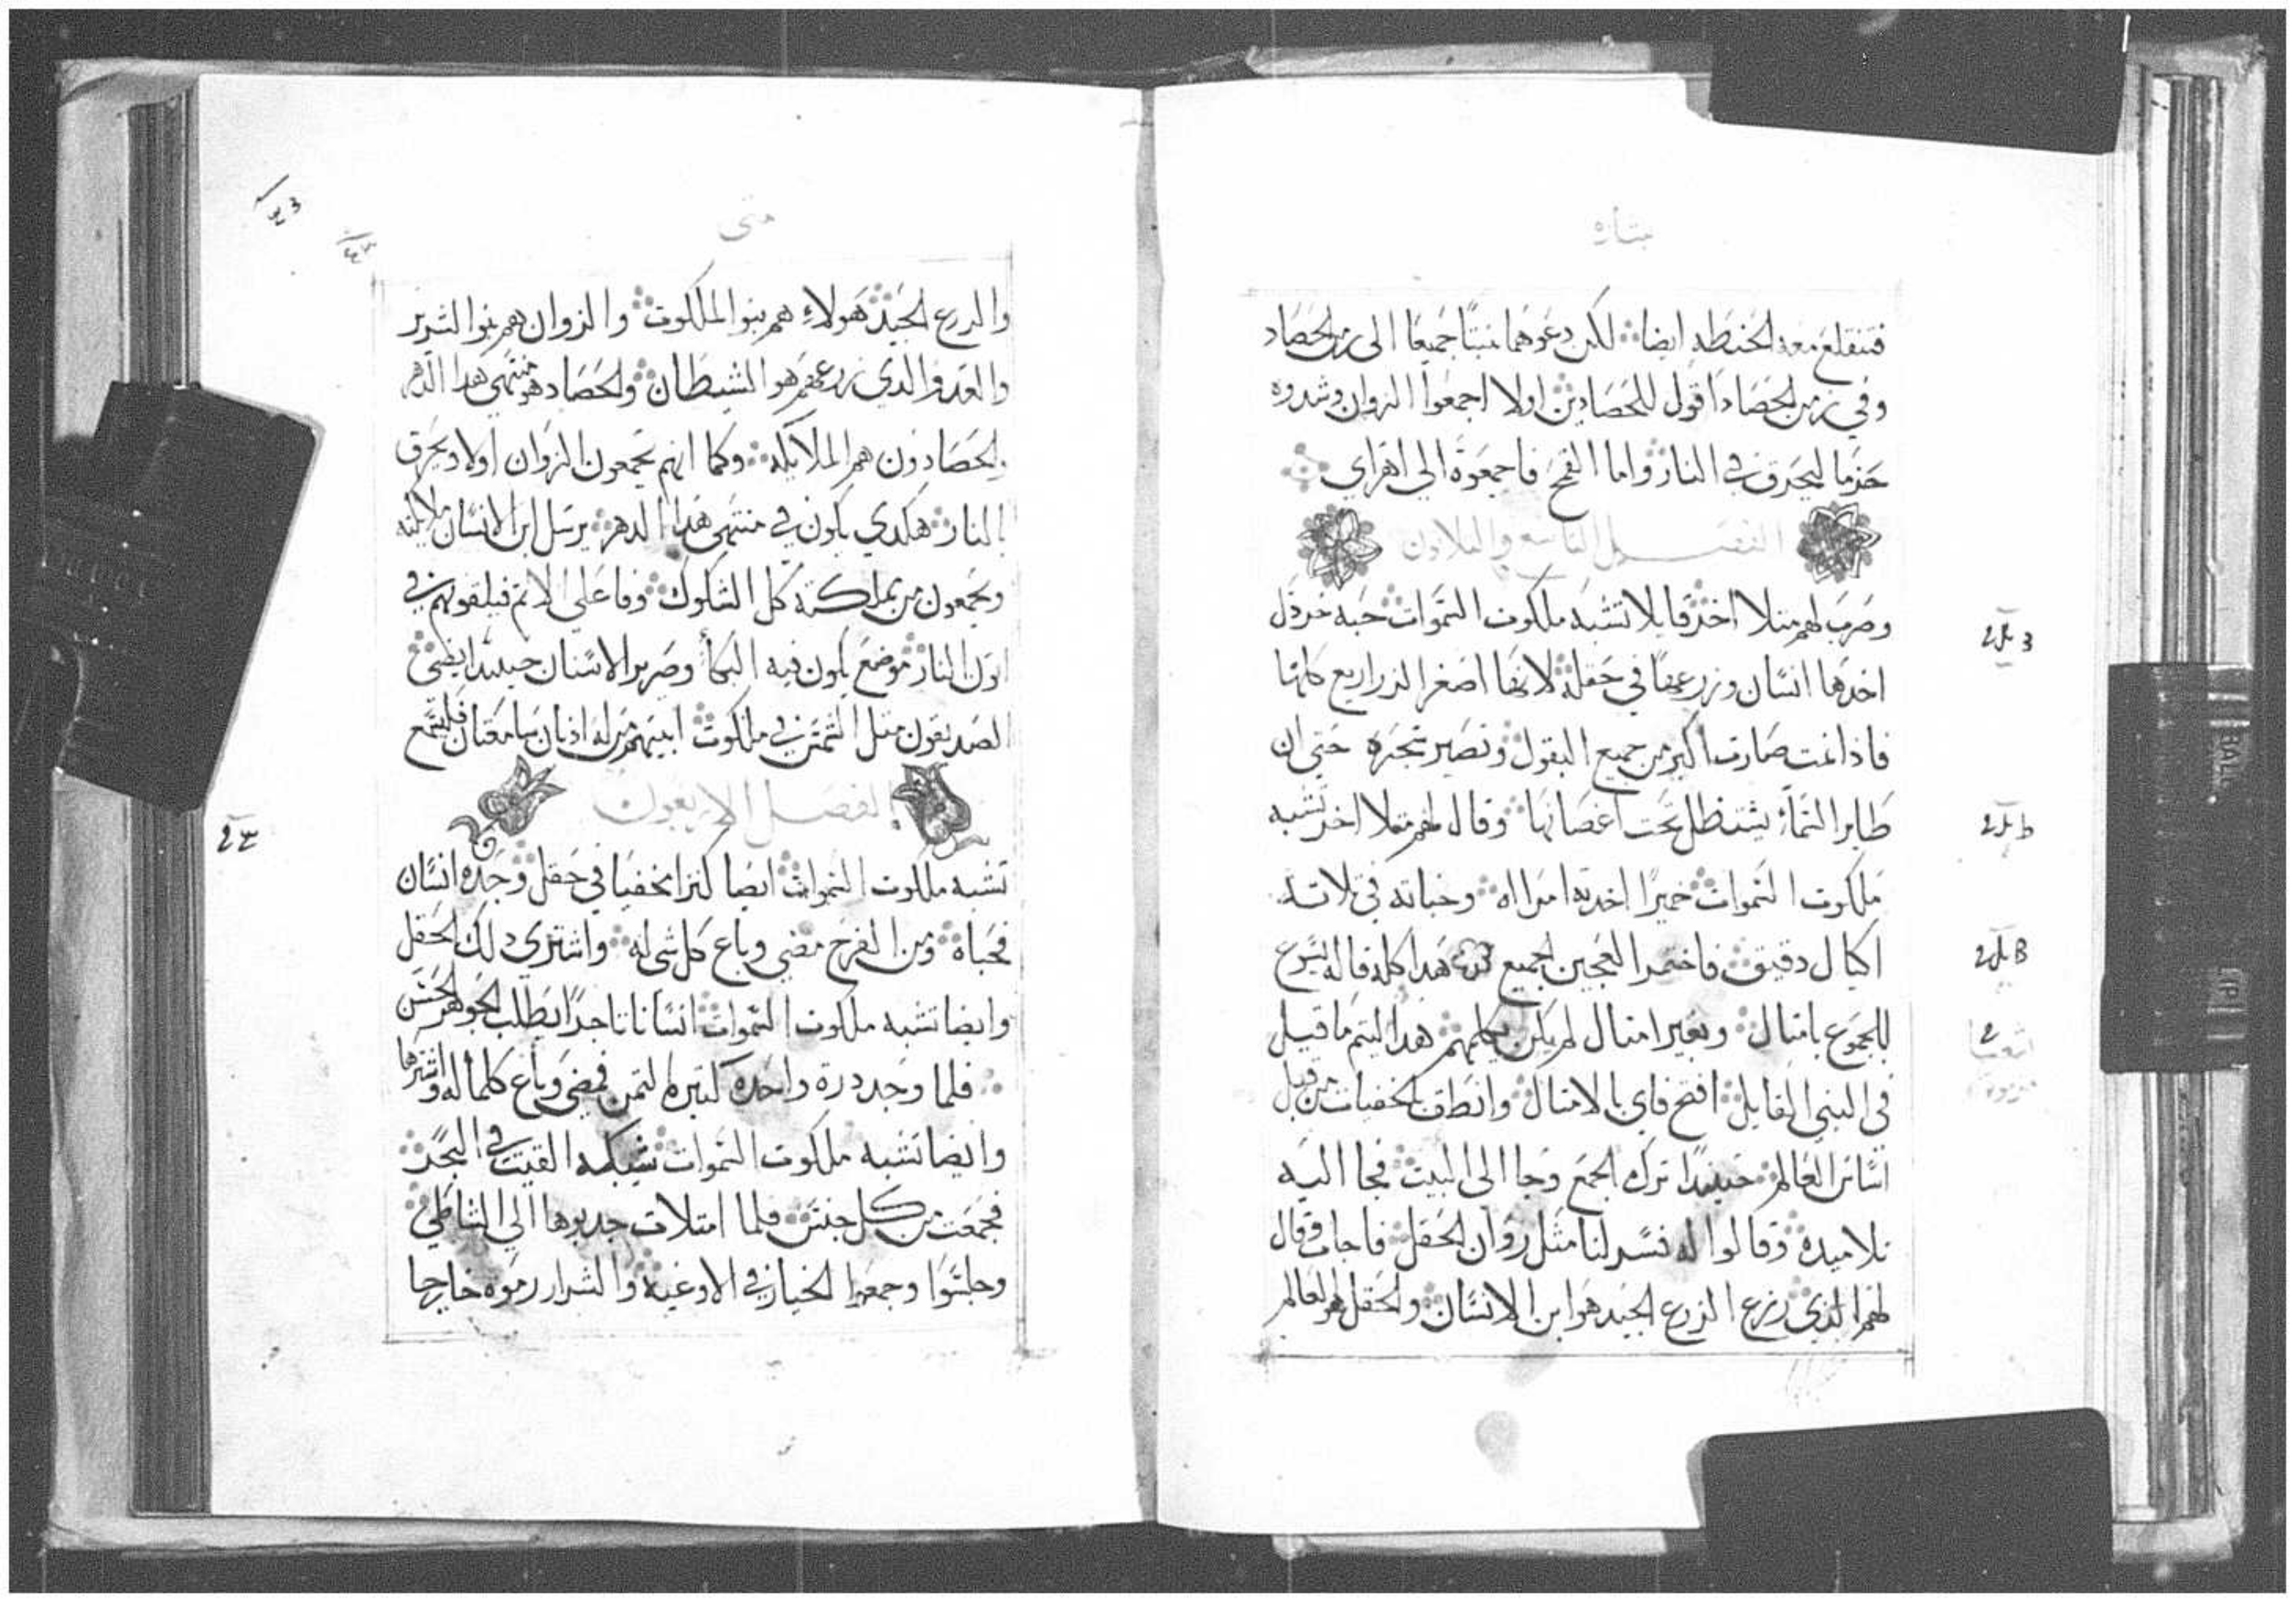 بشاره
فتنقلع معه الحنطه ايضا لكن دعوهما ينبتا جميعا الى زمن الحصاد
وفي زمن الحصاد اقول للحصادين اولا اجمعوا الزوان وشدوه
حزما ليحرق في النار واما القمح فاجمعوه الي اهراي
الفصل التاسع والتلاتون
وضرب لهم متلا اخر قايلا تشبه ملكوت السموات حبه خردل
اخدها انسان وزرعها في حقله لانها اصغر الزراريع كلها
فاذا نمت صارت اكبر من جميع البقول وتصير شجره حتى ان
طاير السماء يستظل تحت اغصانها وقال لهم متلا اخر تشبه
ملكوت السموات خميرا اخدته امراه وخباته في تلاته
اكيال دقيق فاختمر العجين الجميع هدا كله قاله يسوع
للجموع بامتال وبغير امتال لم يكن يكلمهم هدا ليتم ما قيل
في النبي القايل افتح فاي بالامتال وانطق بالخفيات من قبل
اساس العالم حينيدا ترك الجمع وجا الى البيت فجا اليه
تلاميده وقالوا له فسر لنا متل زوان الحقل فاجاب وقال
لهم الدي زرع الزرع الجيد هو ابن الانسان والحقل هو العالم
متى
والزرع الجيد هولاء هم بنو الملكوت والزوان هم بنو الشرير
والعدو الدي زرعهم هو الشيطان والحصاد هو منتهى هدا الدهر
والحصادون هم الملايكه وكما انهم يجمعون الزوان اولا ويحرق
بالنار هكدي يكون في منتهى هدا الدهر يرسل ابن الانسان ملايكته
ويجمعون من مملكته كل الشكوك وفاعلى الاتم فيلقونهم في
اتون النار موضع يكون فيه البكا وصرير الاسنان حينيدا يضي
الصديقون متل الشمس في ملكوت ابيهم من له ادنان سامعتان فليسمع
الفصل الاربعون
تشبه ملكوت السموات ايضا كنزا مخفيا في حقل وجده انسان
فخباه ومن الفرح مضي وباع كل شي له واشتري دلك الحقل
وايضا تشبه ملكوت السموات انسانا تاجرا يطلب الجوهر الحسن
فلما وجد درة واحده كتيره التمن فمضي وباع كلما له واشتراها
وايضا تشبه ملكوت السموات شبكه القيت في البحر
فجمعت من كل جنس فلما امتلات جدبوها الي الشاطي
وجلسوا وجمعوا الخيار في الاوعيه والشرار رموه خارجا